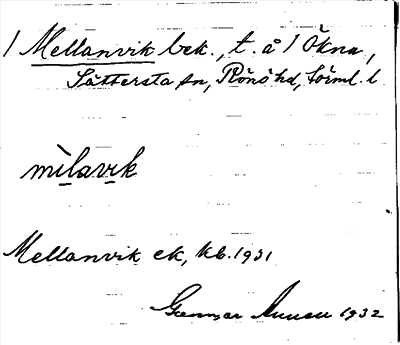 1 Mellanvik bek., t. å 1 Ökna,
Sättersta sn, Rönö hd, Sörml. l.
mìlavik
Mellanvik ek, kb. 1931
Gunnar 1932